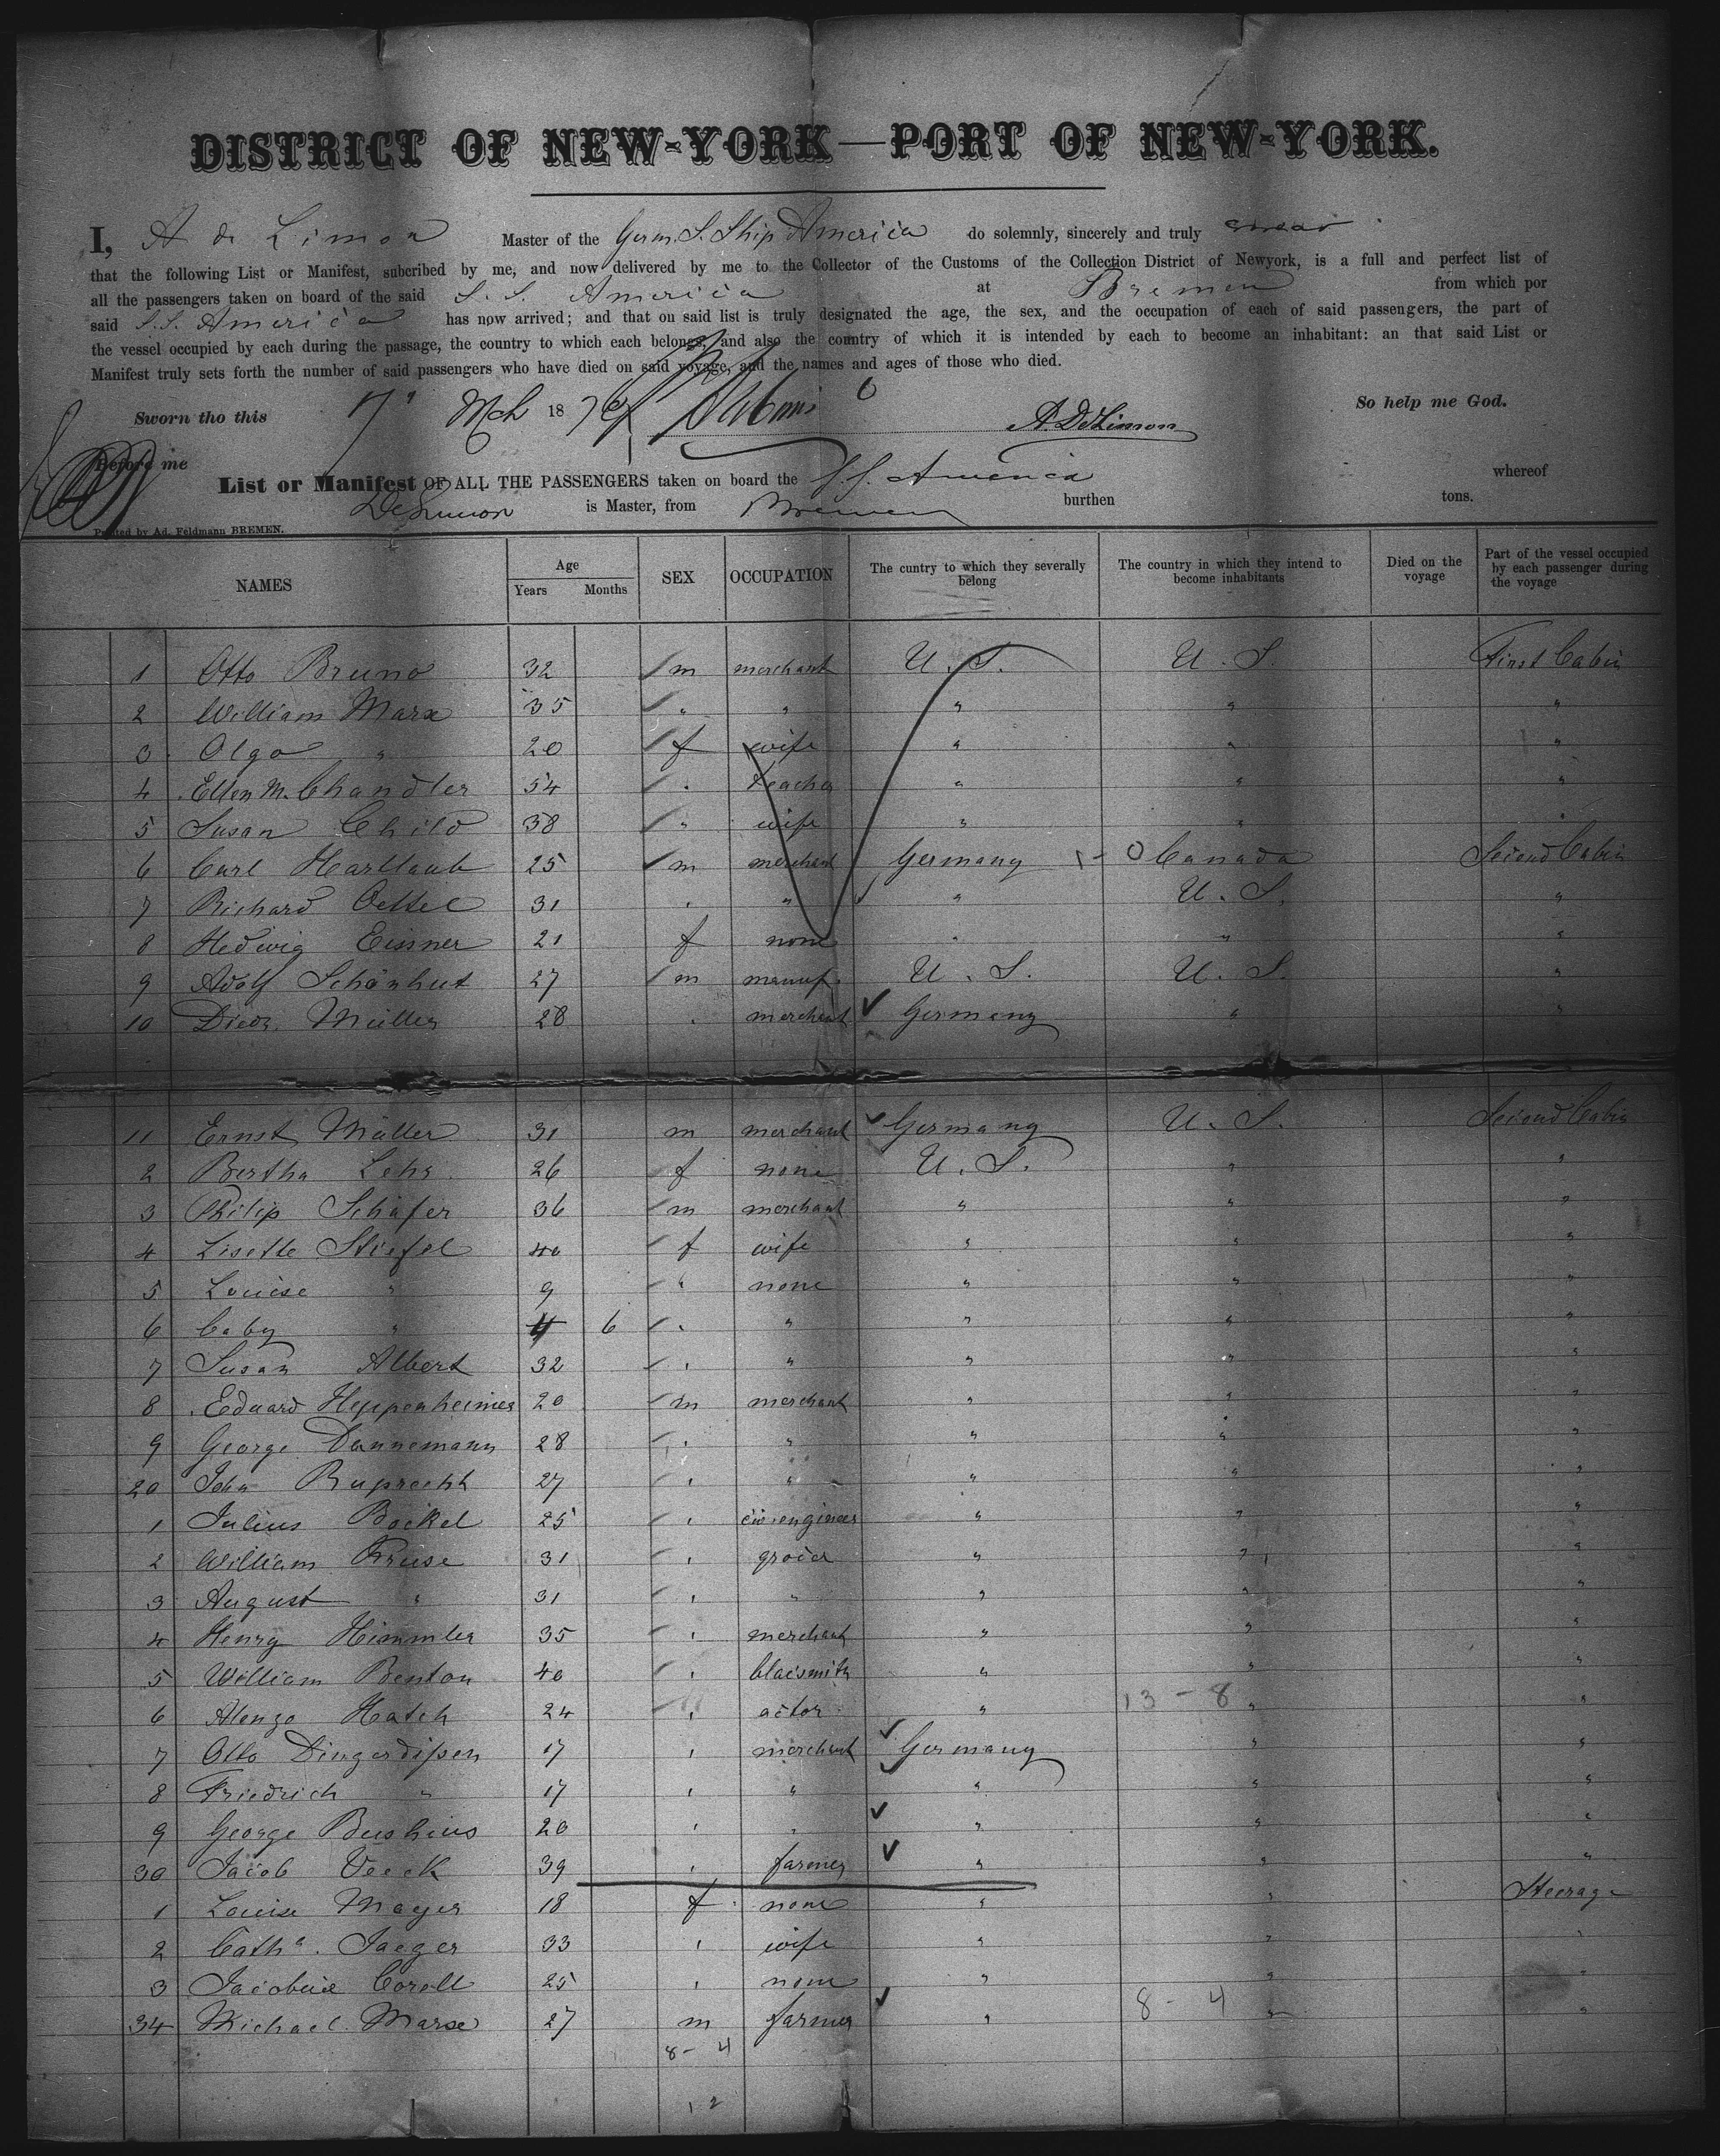 DISTRICT OF NEW-YORK—PORT OF NEW-YORK.
I, A de Limon Master of the Germ. S. Ship America do solemnly, sincerely and truly swear
that the following List or Manifest, subcribed by me, and now delivered by me to the Collector of the Customs of the Collection District of Newyork, is a full and perfect list of
all the passengers taken on board of the said S. S. America at Bremen from which por
said S.S. America has now arrived; and that on said list is truly designated the age, the sex, and the occupation of each of said passengers, the part of
the vessel occupied by each during the passage, the country to which each belongs, and also the country of which it is intended by each to become an inhabitant: an that said List or
Manifest truly sets forth the number of said passengers who have died on said voyage, and the names and ages of those who died.
Sworn tho this 17" Mch 1876 A. DeLimon So help me God.
Before me
List or Manifest OF ALL THE PASSENGERS taken on board the S.S. America whereof
DeLimon is Master, from Bremen burthen tons.
Printed by Ad. Feldmann BREMEN.
NAMES Age Years Months SEX OCCUPATION The cuntry to which they severally belong The country in which they intend to become inhabitants Died on the voyage Part of the vessel occupied by each passenger during the voyage
1 Otto Bruno 32 m merchant U. S. U. S. First Cabin
2 William Marx 35 " " " " "
3 Olga " 20 f wife " " "
4 Ellen M. Chandler 54 " teacher " " "
5 Susan Child 38 " wife " " "
6 Carl Hartlaub 25 m merchant Germany 1 - 0 Canada Second Cabin
7 Richard Oettel 31 " " " U. S. "
8 Hedwig Eissner 21 f none " " "
9 Adolf Schönhut 27 m manuf. U. S. U. S. "
10 Diedr. Müller 28 " merchant Germany " "
11 Ernst Müller 31 m merchant Germany U. S. Second Cabin
2 Bertha Lehr 26 f none U. S. " "
3 Philip Schäfer 36 m merchant " " "
4 Lisette Stiefel 40 f wife " " "
5 Louise " 9 " none " " "
6 Baby " 4 6 " " " " "
7 Susan Albert 32 " " " " "
8 Eduard Heppenheimer 20 m merchant " " "
9 George Dannemann 28 " " " " "
20 John Ruprecht 27 " " " " "
1 Julius Böckel 25 " civ. engineer " " "
2 William Kruse 31 " grocer " " "
3 August " 31 " " " " "
4 Henry Himmler 35 " merchant " " "
5 William Benton 40 " blacsmith " " "
6 Alonzo Hatch 24 " actor " 13 - 8 " "
7 Otto Dingerdissen 17 " merchant Germany " "
8 Friedrich " 17 " " " " "
9 George Bushius 20 " " " " "
30 Jacob Veeck 39 " farmer " " "
1 Louise Mayer 18 f none " " Steerage
2 Catha. Jaeger 33 " wife " " "
3 Jacobine Corell 25 " none " " "
34 Michael Marx 27 m farmer " 8 - 4 " "
8 - 4
12